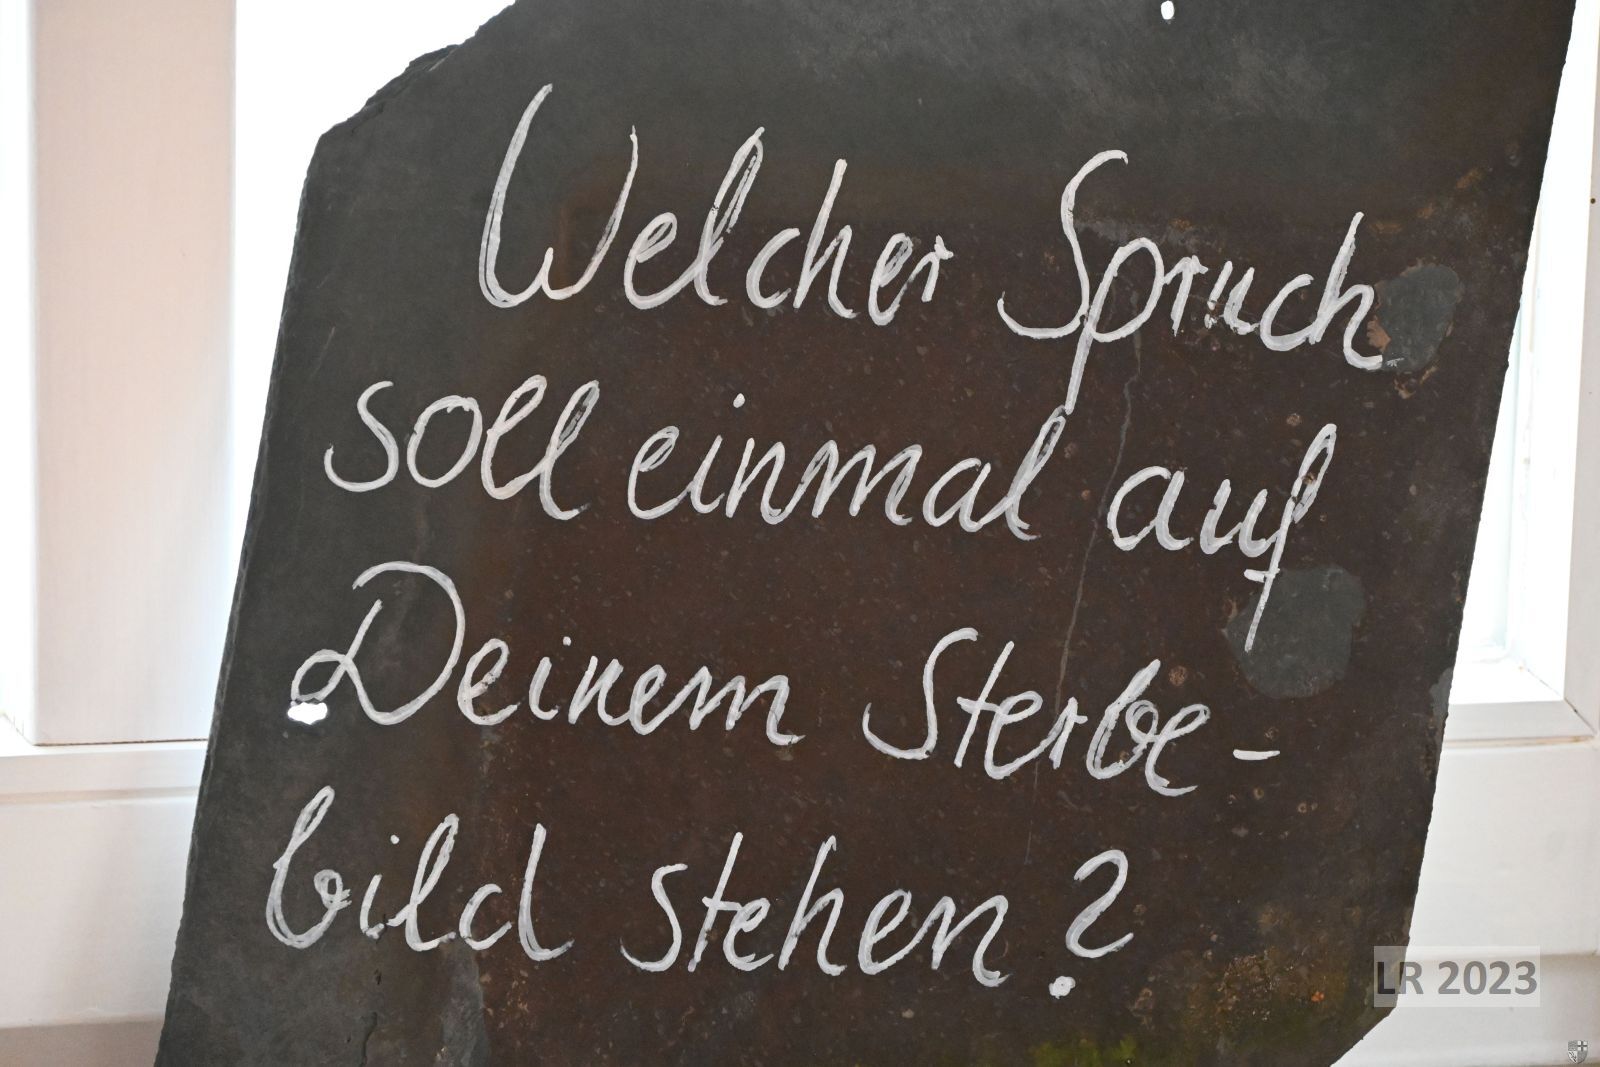 Welcher Spruch
soll einmal auf
Deinem Sterbe-
bild stehen?
LR 2023